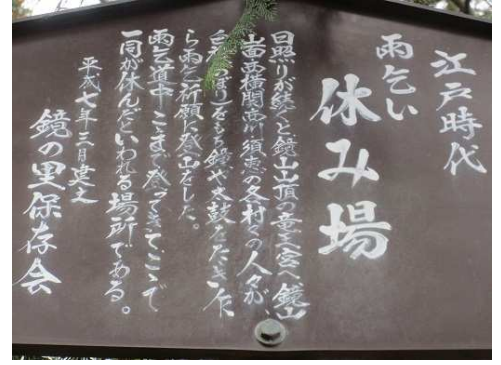 江戸時代
雨乞い
休み場
日照りが続くと鏡山山頂の竜王宮へ鏡山
山面西横関西川須恵の各村々の人々が
(のぼり)をもち鐘や太鼓をたたき乍
ら雨を祈願に登山をした。
雨乞道中ここまで登ってきてここで
一同が休んだといわれる場所である。
平成七年三月建之
鏡の里保存会